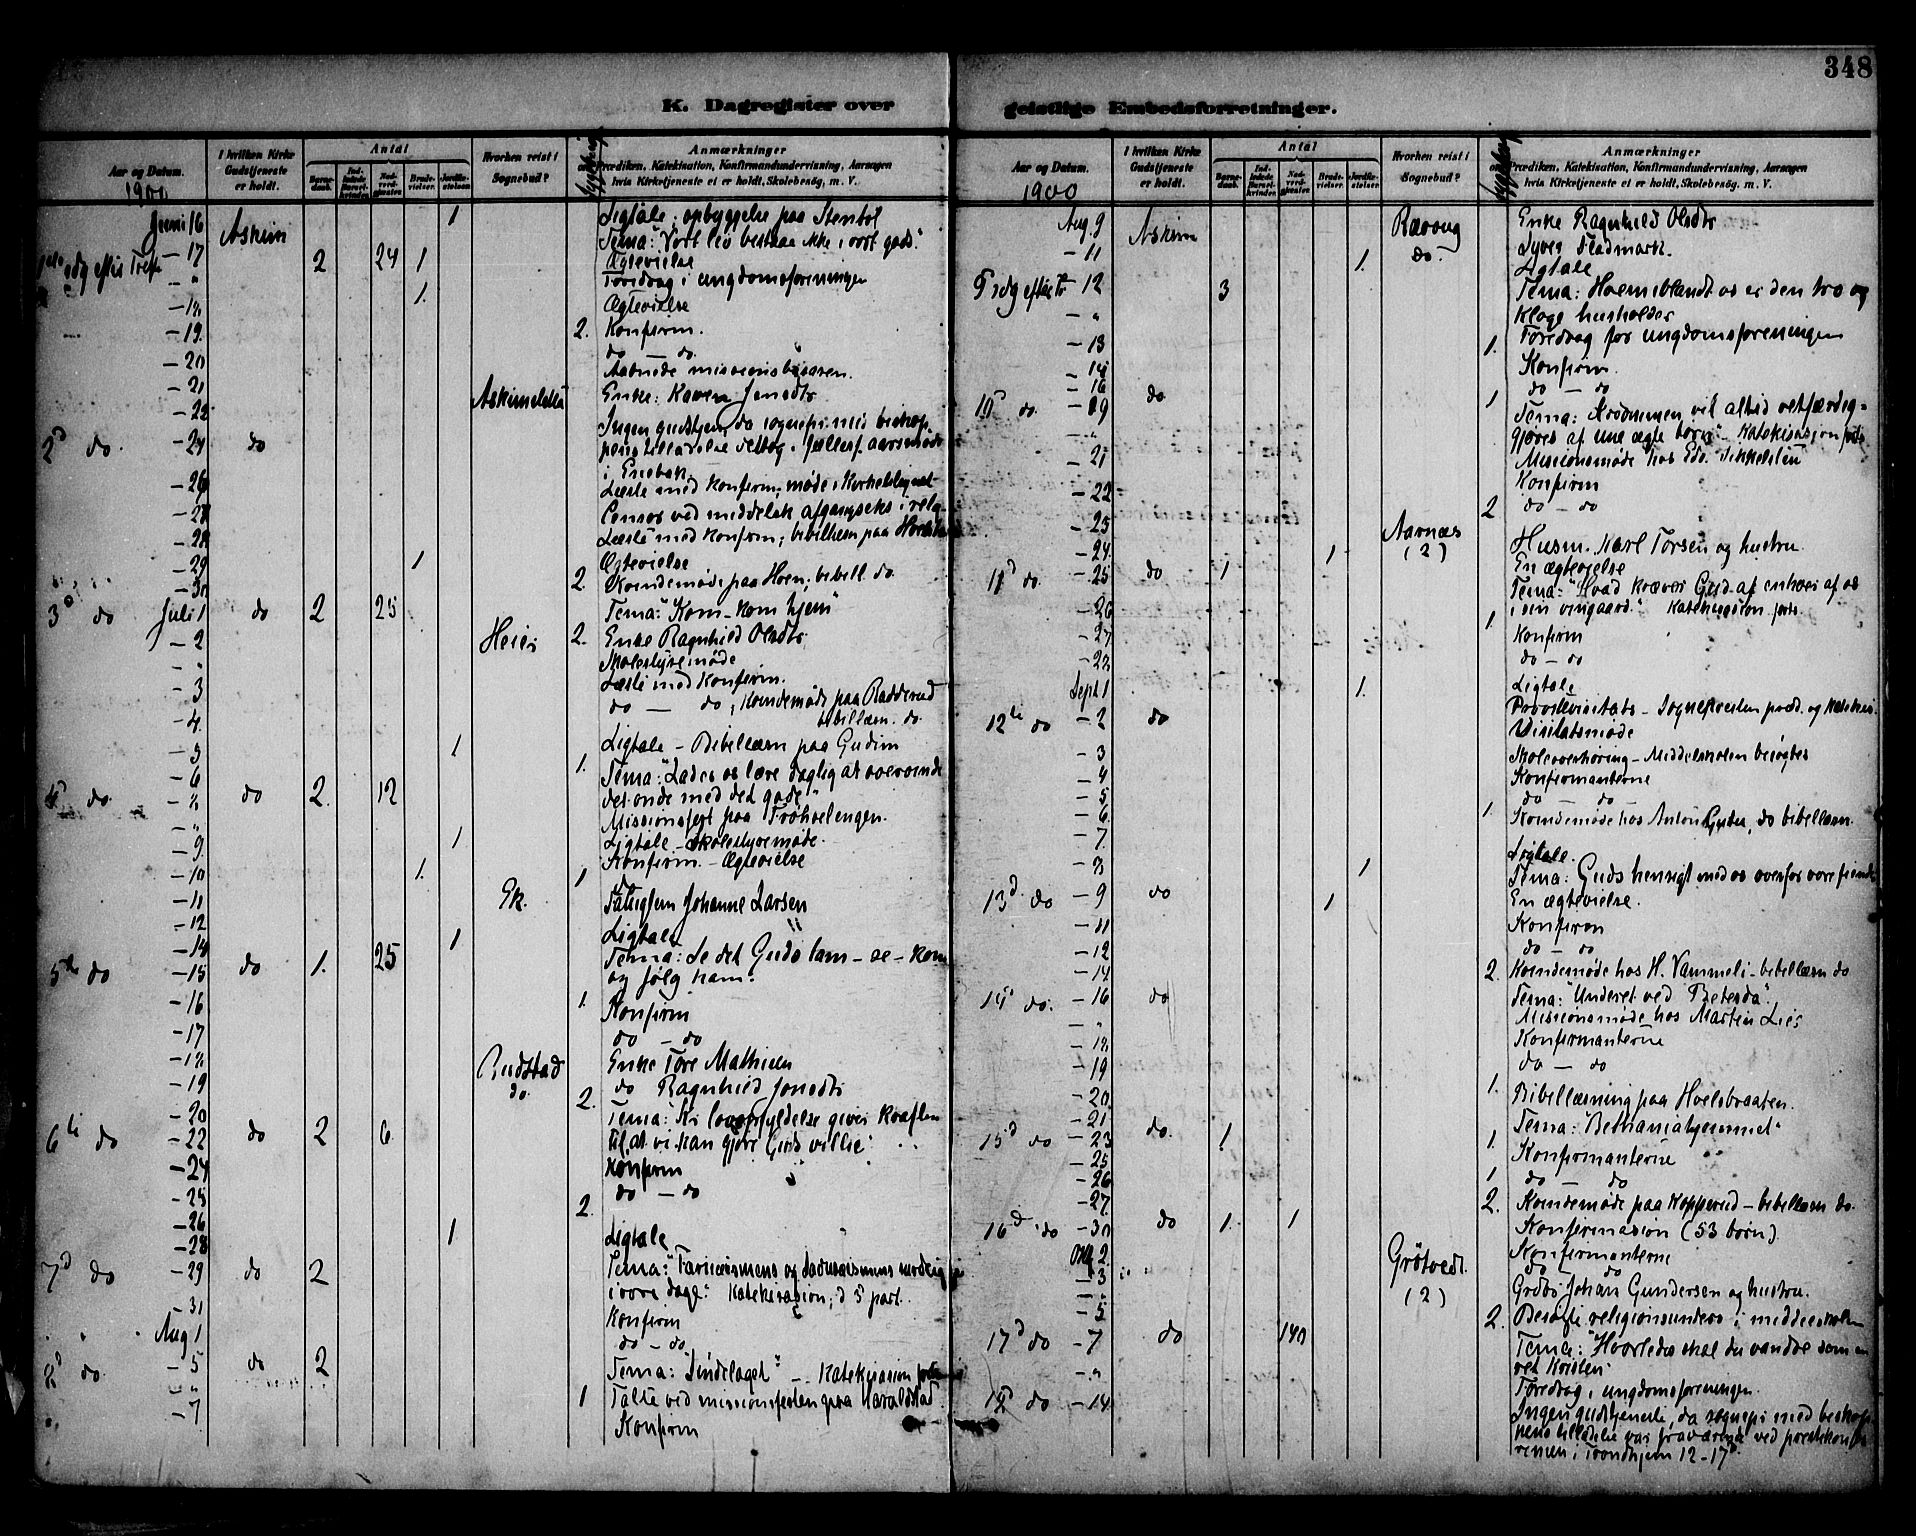 348
K. Dagregister over
geistlige Embedsforretninger.
Aar og Datum.
1900
I hvilken Kirke Gudstjeneste er holdt.
Antal
Barnedaab.
Nadverdgjester.
Brudevielser.
Jordfæstelser.
Hvorhen reist i Sognebud?
Anmærkninger
Prædiken, Katekisation, Konfirmandundervisning, Aarsagen
hvis Kirketjeneste ei er holdt, Skolebesøg, m. V.
Juni 16 Askim 1 Ligtale; opbyggelse paa Stenbøl
- 17 2 24 1 Tema: "Vort liv bestaar ikke i vort gods."
Ægtevielse
- " Foredrag i ungdomsforeningen
- 18 1. Ægtevielse
- 19. 2. Konfirm.
- 20 do - do.
- 21 Aabnede missionsbasaren.
- 22 Enke: Karen Jensdtr
2d do - 24 do Ingen gudstjen. da sognepr. med biskop-
pens tilladelse deltog i fællesf. aarsmøde
i Enebak
- 26 Læste med konfirm; møde i
- 27 Censor ved middelsk afgangseks i relg.
- 28 Læste med konfirm;
- 29 1 Ægtevielse
- 30 2. Kvindemøde paa Hoen; bibell. do.
3d do Juli 1 do 2 25 Tema: "Kom - kom hjem"
- 2 Heier 2. Enke Ragnhild Olsdtr,
- " Skolestyremøde
- 3 Læste med konfirm.
- 4. do - do, Kvindemøde paa Radderud
bibellæsn. do.
- 5 1 Ligtale - Bibellæsn paa Gudim
- 6 1. Tema: "Lader os lære daglig at overvinde
do - 8 do 2. 12 det onde med det gode"
- " Missionsfest paa Frøhvelengen.
- 9. 1 Ligtale - skolestyremøde.
- 10 1. Konfirm. - Ægtevielse
- 11 Ek. 1 do
- 12 Johanne Larsen
- 14 1 Ligtale
5te do - 15 do 1. 25 Tema: Se det Guds lam - se - kom
og følg ham!
- 16 1. Konfirm
- 17 do - do
- 18 Rudstad Enke Tore Mathisen
- 19 do. do Ragnhild Jonsdtr
- 20 2.
6te do - 22 do 2 6 Tema: "Kr lovopfyldelse giver kraften
til at vi kan gjøre Guds villie"
- 24 Konfirm
- 25 do - do
- 26 2.
- 28 1 Ligtale
7d do - 29 do 2 Tema: "Farisæismens og
i vore dage" Katekisasion; d 5 part.
- 31 Konfirm
Aug 1 do - do
do - 5 do 2 Tema: "Sindelaget" - Katekisasion
- " 1 Talte ved missionsfesten paa Haraldstad
- 7 Konfirm
Aar og Datum.
1900
I hvilken Kirke Gudstjeneste er holdt.
Antal
Barnedaab.
Nadverdgjester.
Brudevielser.
Jordfæstelser.
Hvorhen reist i Sognebud?
Anmærkninger
Prædiken, Katekisation, Konfirmandundervisning, Aarsagen
hvis Kirketjeneste ei er holdt, Skolebesøg, m. V.
Aug. 9 Askim Enke Ragnhild Olsdtr
- 11 1. do. Syver Fladmark.
Ligtale
- 12 3 Tema: Hvem iblandt os er den tro og
kloge husholder
- " Foredrag for ungdomsforeningen
- 13 1. Konfirm.
- 14 do - do
- 16
10d do. - 19 do 1 Tema: Visdommen vil altid retfærdig-
gjøres af sine ægte børn" - Katekisasjon
- " Missionsmøde hos Edv. Sikkelstén
- 21 Konfirm
- 22 2 do - do
- 23 Aarnæs
- 24. 1 (2) Husm. Karl Torsen og hustru
11d do. - 25 do 1 En ægtevielse
Tema: "Hvad kræver Gud af enhver af os
- 26 i sin vingaard." Katekisasion
- 27 1. Konfirm
- 28 do - do
Sept 1 1. Ligtale
12te do - 2 do Provstevisitats - Sognepresten præd. og
Visitatsmøde
- 3 Skoleoverhøring - Middelskolen besøgtes
- 4 Konfirmanterne
- 5 do - do
- 6. 1. Kvindemøde hos Anton, do bibellæsn.
- 7
- 8 1 Ligtale.
13d do - 9 do 1 Tema: Guds hensigt med os overfor vore fiender
En ægtevielse.
- 11 Konfirm
- 12 do - do
- 14 2. Kvindemøde hos H. Vammeli - bibellæsn do
14d do. - 16 do Tema: "Underet ved Betesda".
- " Missionsmøde hos Martin Lies
- 18 Konfirmanterne
- 19 do - do
- 20 1. Bibellæsning paa Hvelsbraaten.
- 21
15d do - 23 do. 1. Tema: "Bethaniahjemmet"
- 25 1. Konfirmanterne
- 26 1 do - do
- 27. 2. Kvindemøde paa Kopperud - bibellæsn do.
16d do - 30 do 1. 1 Konfirmasion (53 børn)
Okt 2 Konfirmanterne
- 3 Grøtvedt do - do
- 5 (2) Grdbr Johan Gundersen og hustru.
2. Besøgte religionsunderv i middelskolen
17d do - 7 do 140 Tema: "Hvorledes skal du vandre som en
ret Kristen"
- " Foredrag i ungdomsforeningen
18d do - 14 Ingen gudstjeneste, da sognepr med biskop-
pens tilladelse var fraværende ved prestekonfe-
rensen i Trondhjem 12-17d